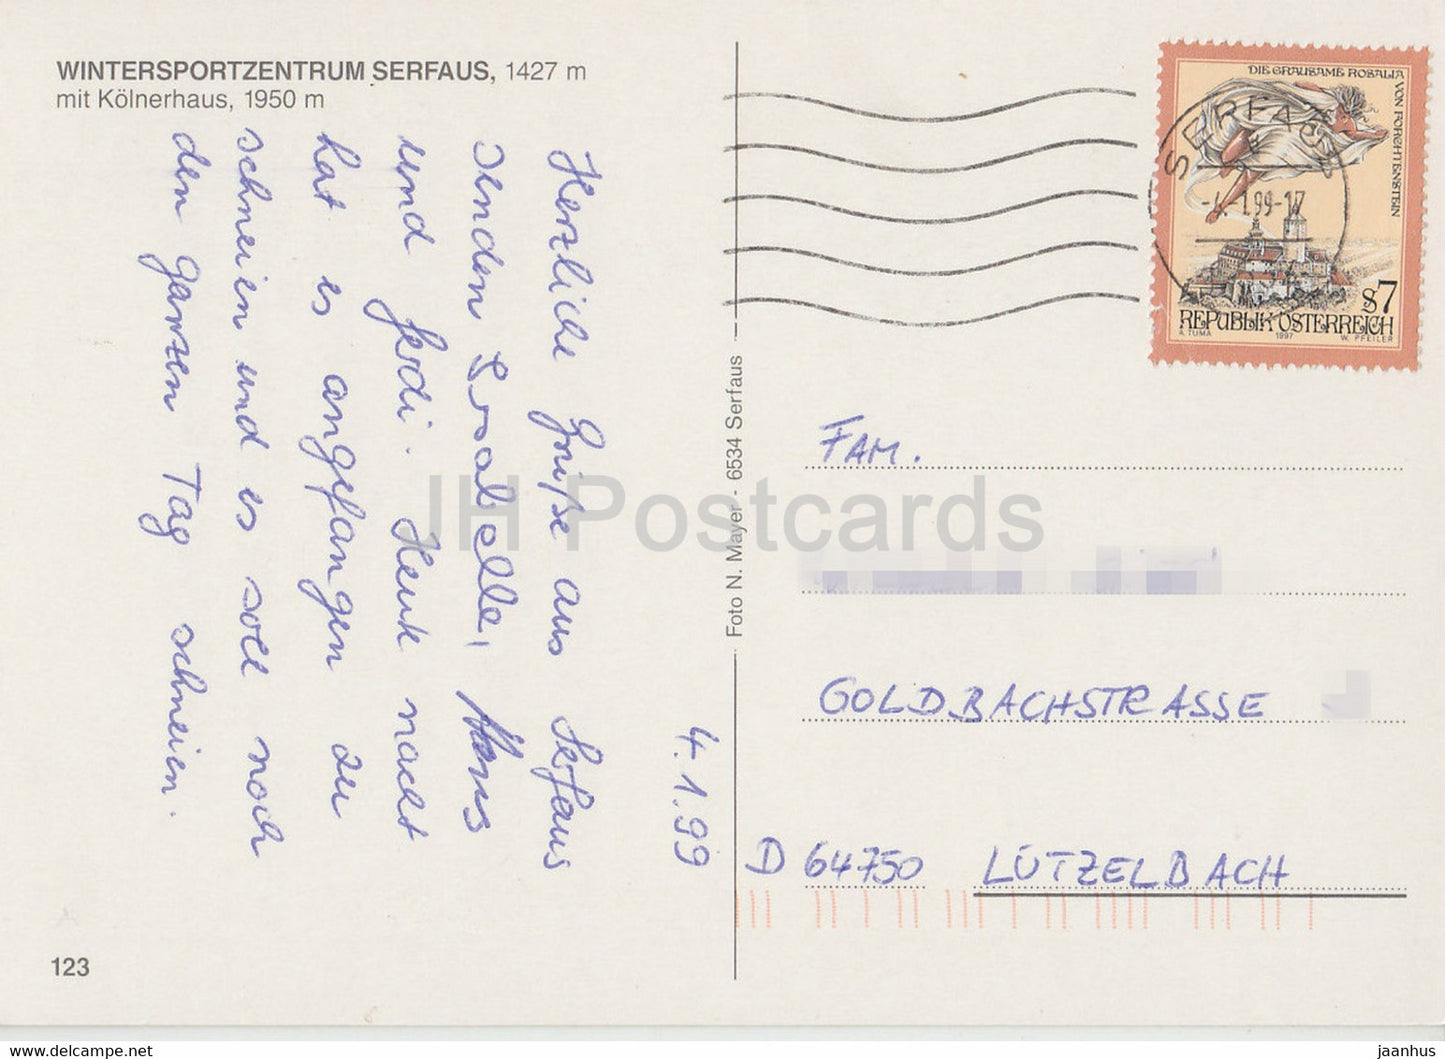 WINTERSPORTZENTRUM SERFAUS, 1427 m
mit Kölnerhaus, 1950 m
4.1.99
Herzliche Grüße aus Serfaus
senden Isabelle, Hans
und Ferdi. Heute nacht
hat es angefangen zu
schneien und es soll noch
den ganzen Tag schneien.
123
Foto N. Mayer - 6534 Serfaus
DIE GRAUSAME ROSALIA VON FORCHTENSTEIN
SERFAUS
1.99-17
S7
REPUBLIK ÖSTERREICH
A. TUMA 1997 W. PFEILER
FAM.
GOLDBACHSTRASSE
D 64750 LÜTZELBACH
JH Postcards
jaanhus — https://www.jhpostcards.com